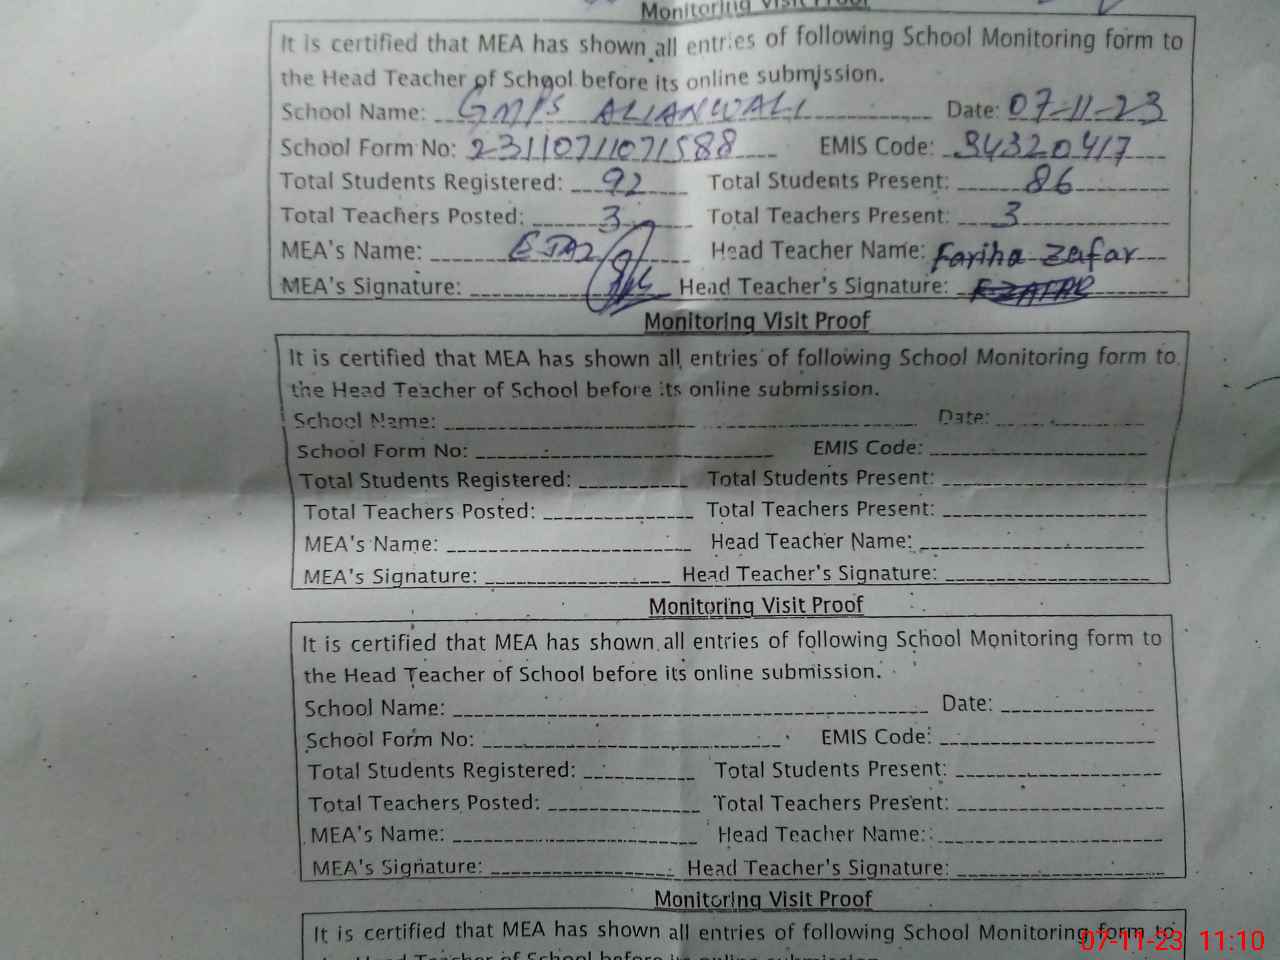 Monitoring Visit Proof
It is certified that MEA has shown all entries of following School Monitoring form to
the Head Teacher of School before its online submission.
School Name: GMPS ALIANWALI Date: 07-11-23
School Form No: 23110711071588 EMIS Code: 34320417
Total Students Registered: 92 Total Students Present: 86
Total Teachers Posted: 3 Total Teachers Present: 3
MEA's Name: EJAZ Head Teacher Name: Fariha Zafar
MEA's Signature: Head Teacher's Signature: FZAFAR
Monitoring Visit Proof
It is certified that MEA has shown all entries of following School Monitoring form to
the Head Teacher of School before its online submission.
School Name: Date:
School Form No: EMIS Code:
Total Students Registered: Total Students Present:
Total Teachers Posted: Total Teachers Present:
MEA's Name: Head Teacher Name:
MEA's Signature: Head Teacher's Signature:
Monitoring Visit Proof
It is certified that MEA has shown all entries of following School Monitoring form to
the Head Teacher of School before its online submission.
School Name: Date:
School Form No: EMIS Code:
Total Students Registered: Total Students Present:
Total Teachers Posted: Total Teachers Present:
MEA's Name: Head Teacher Name:
MEA's Signature: Head Teacher's Signature:
Monitoring Visit Proof
It is certified that MEA has shown all entries of following School Monitoring form to
the Head Teacher of School before its online submission.
07-11-23 11:10